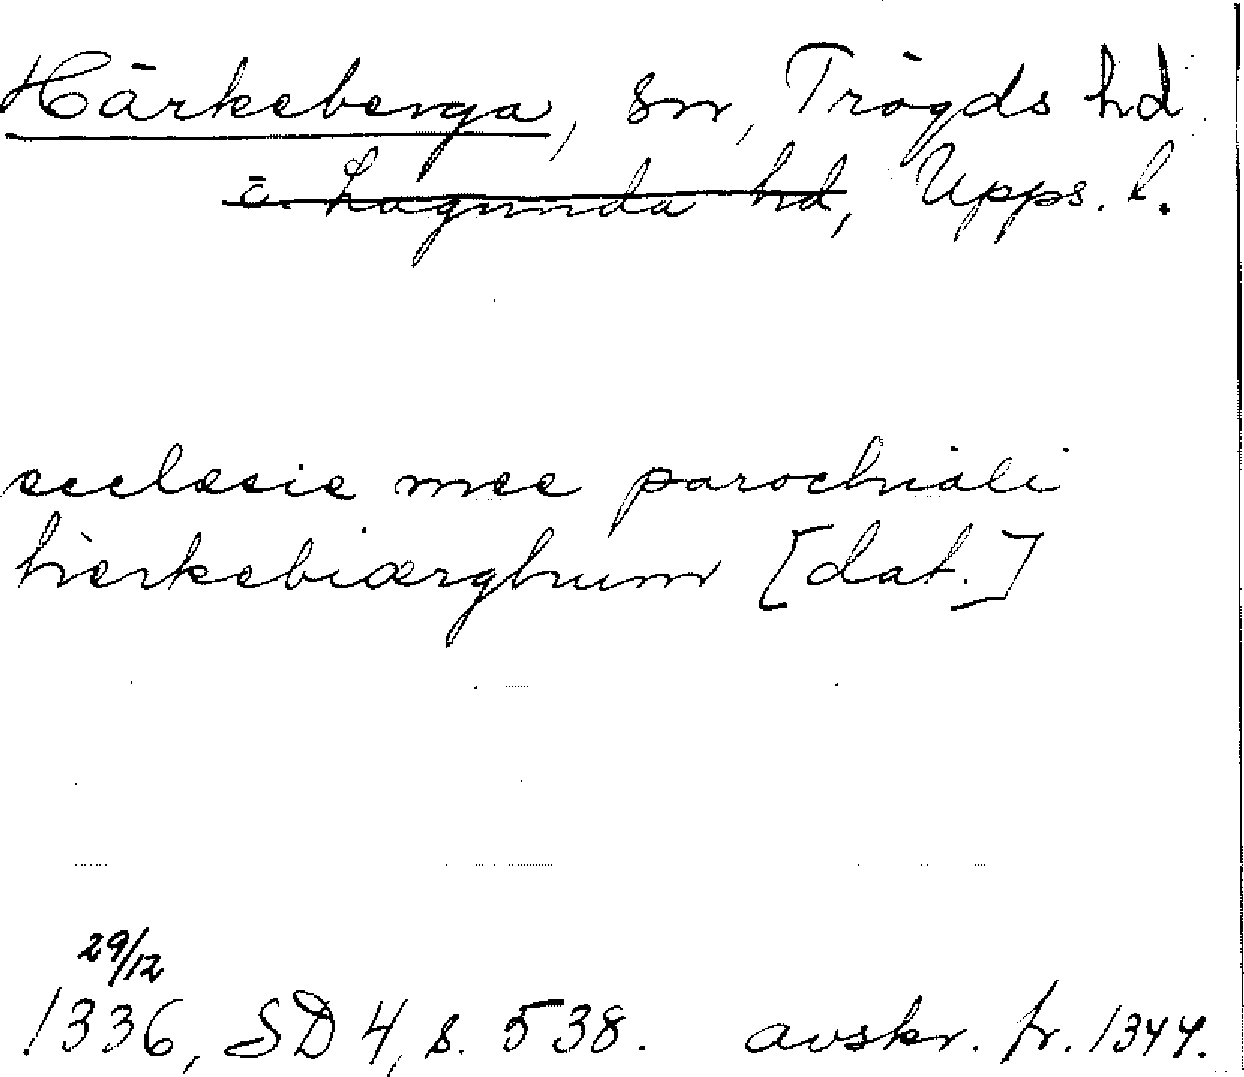 Härkeberga, sn, Trögds hd
o. Lagunda hd, Upps. l.
ecclesie mee parochiali
hærkebiærghum [dat.]
29/12
1336, SD 4, s. 538. avskr. fr. 1344.